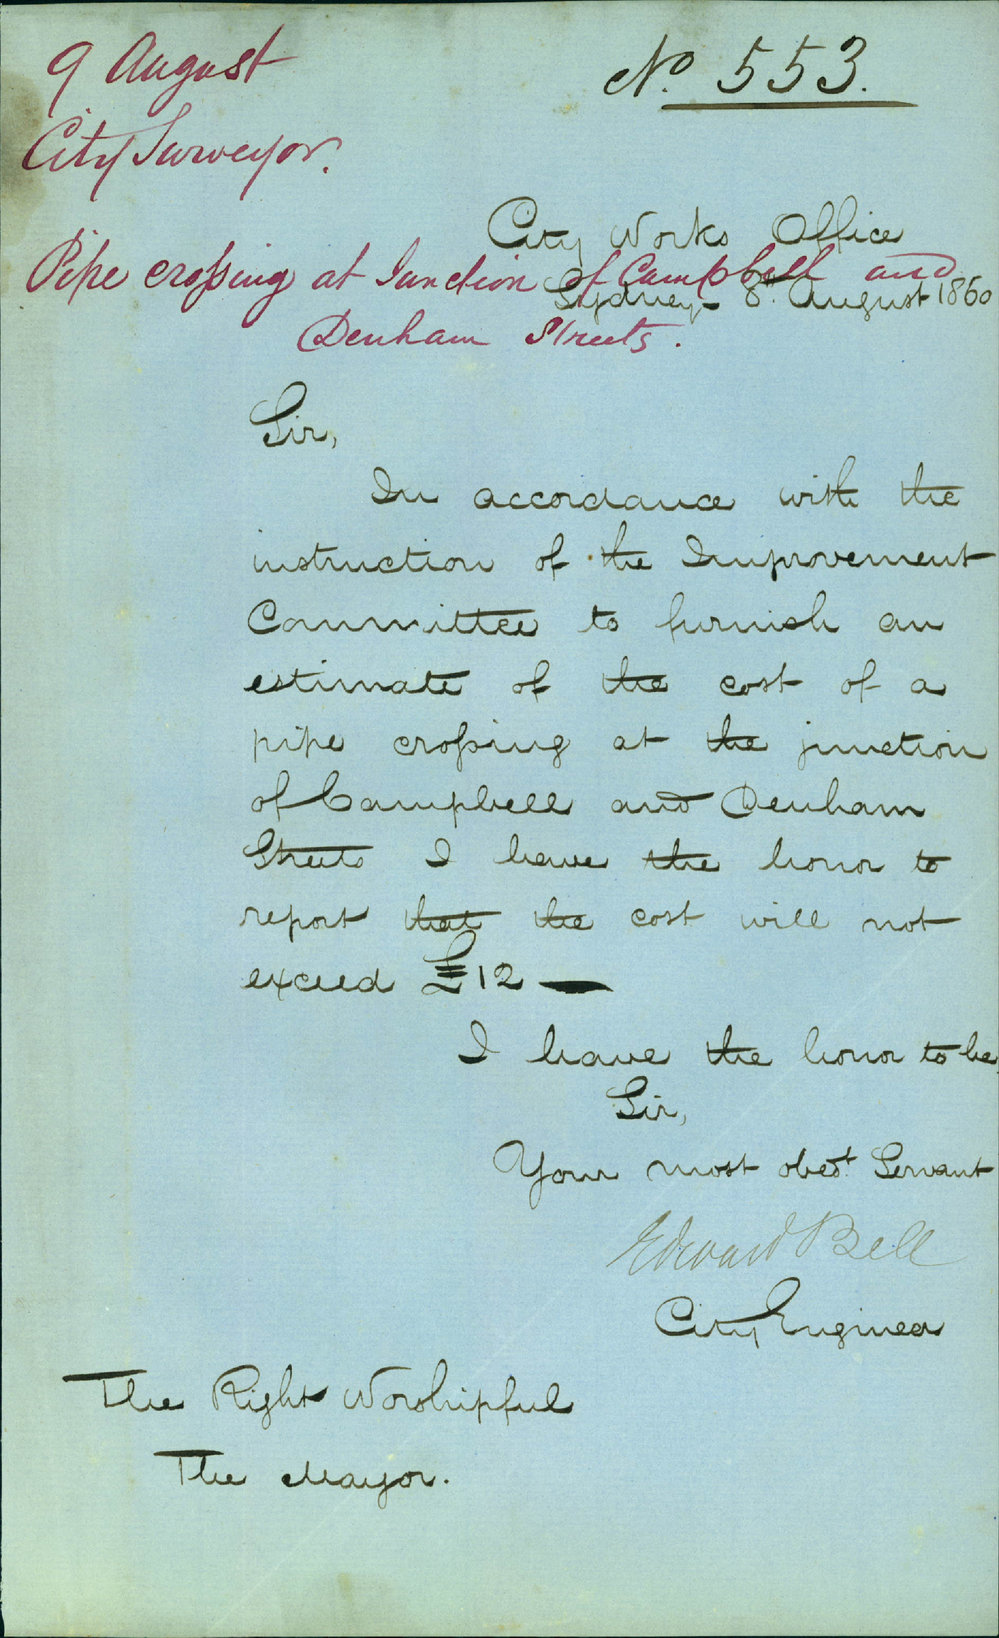 9 August
No. 553.
City Surveyor.
City Works Office
Pipe crossing at Junction of Campbell and
Sydney 8th August 1860
Denham Streets.
Sir,
In accordance with the
instruction of the Improvement
Committee to furnish an
estimate of the cost of a
pipe crossing at the junction
of Campbell and Denham
Streets I have the honor to
report that the cost will not
exceed £12 —
I have the honor to be,
Sir,
Your most obedt. Servant
Edward Bell
City Engineer
The Right Worshipful
The Mayor.